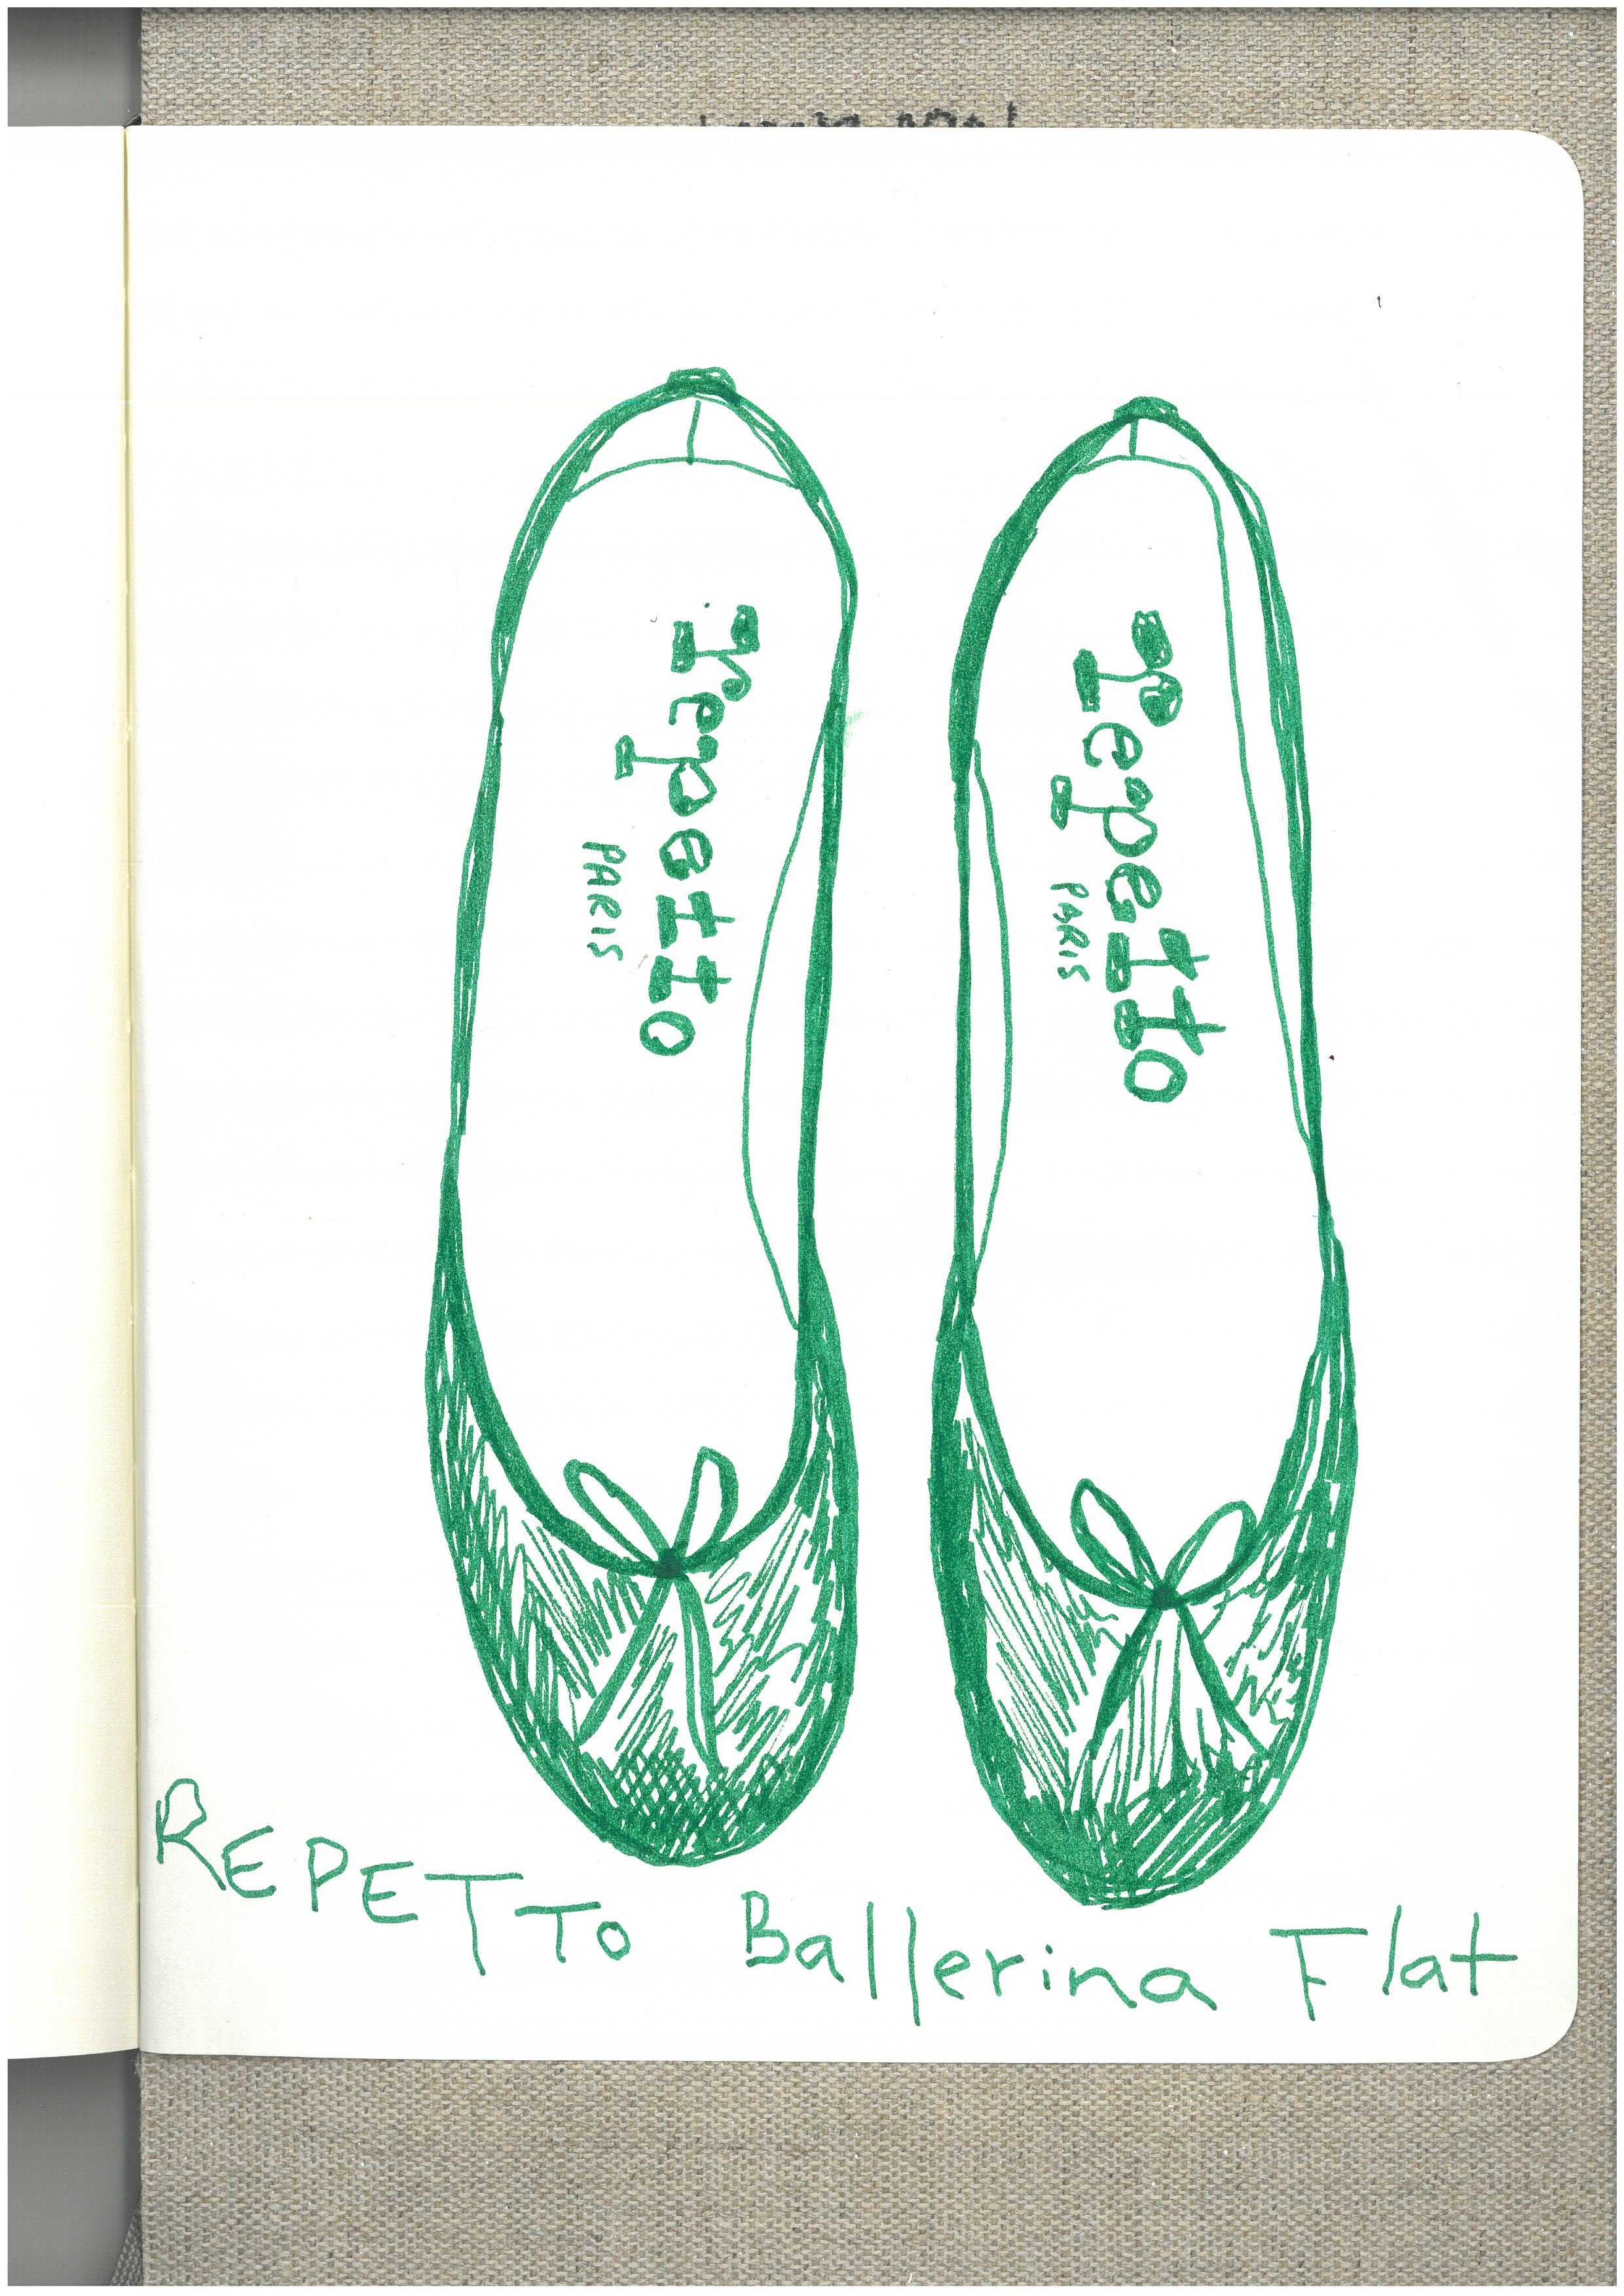 repetto
PARIS
repetto
PARIS
REPETTO Ballerina Flat